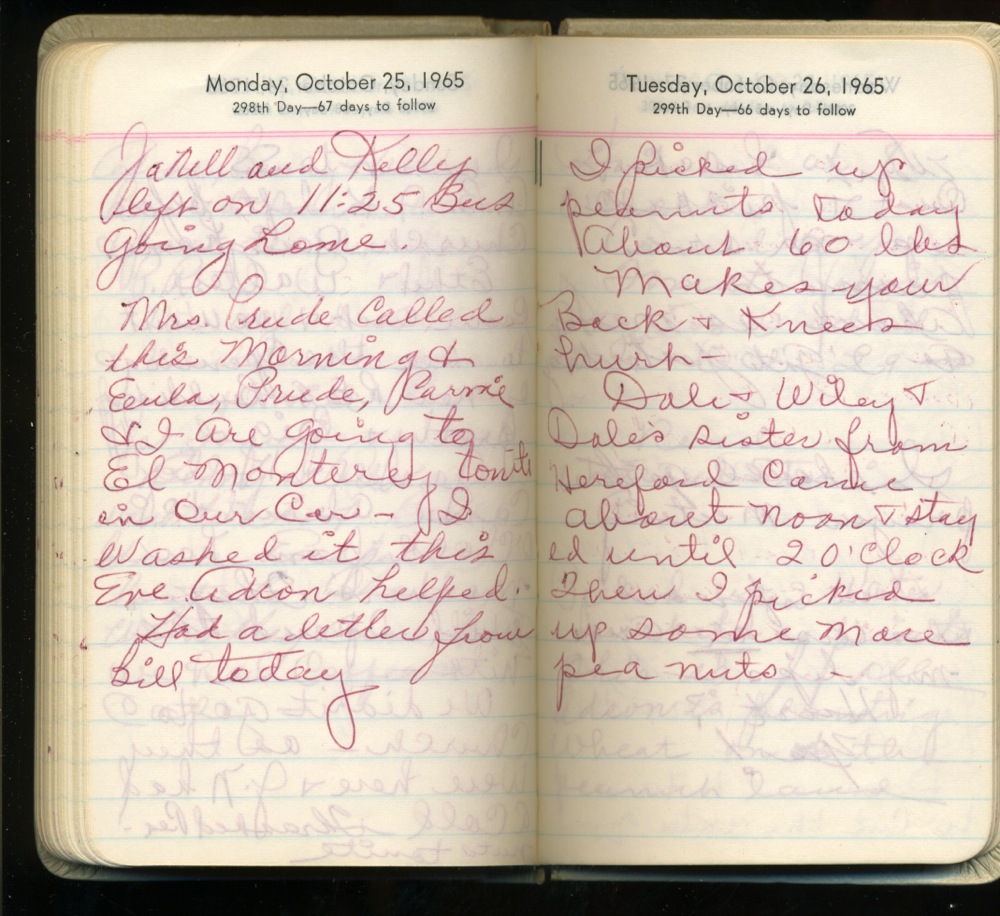 Monday, October 25, 1965
298th Day—67 days to follow
Janell and Kelly
left on 11:25 Bus
going home.
Mrs. Prude Called
this Morning &
Eeula, Prude, Carmie
& I Are going to
El Monterey tonite
in Our Car - I
Washed it this
Eve helped.
Had a letter from
Bill today
Tuesday, October 26, 1965
299th Day—66 days to follow
I picked up
peanuts today
About 60 lbs
Makes your
Back & Knees
hurt -
Dale & Wiley &
Dale's sister from
Hereford Came
about noon & stay
ed until 2 O'Clock
Then I picked
up some More
pea nuts -